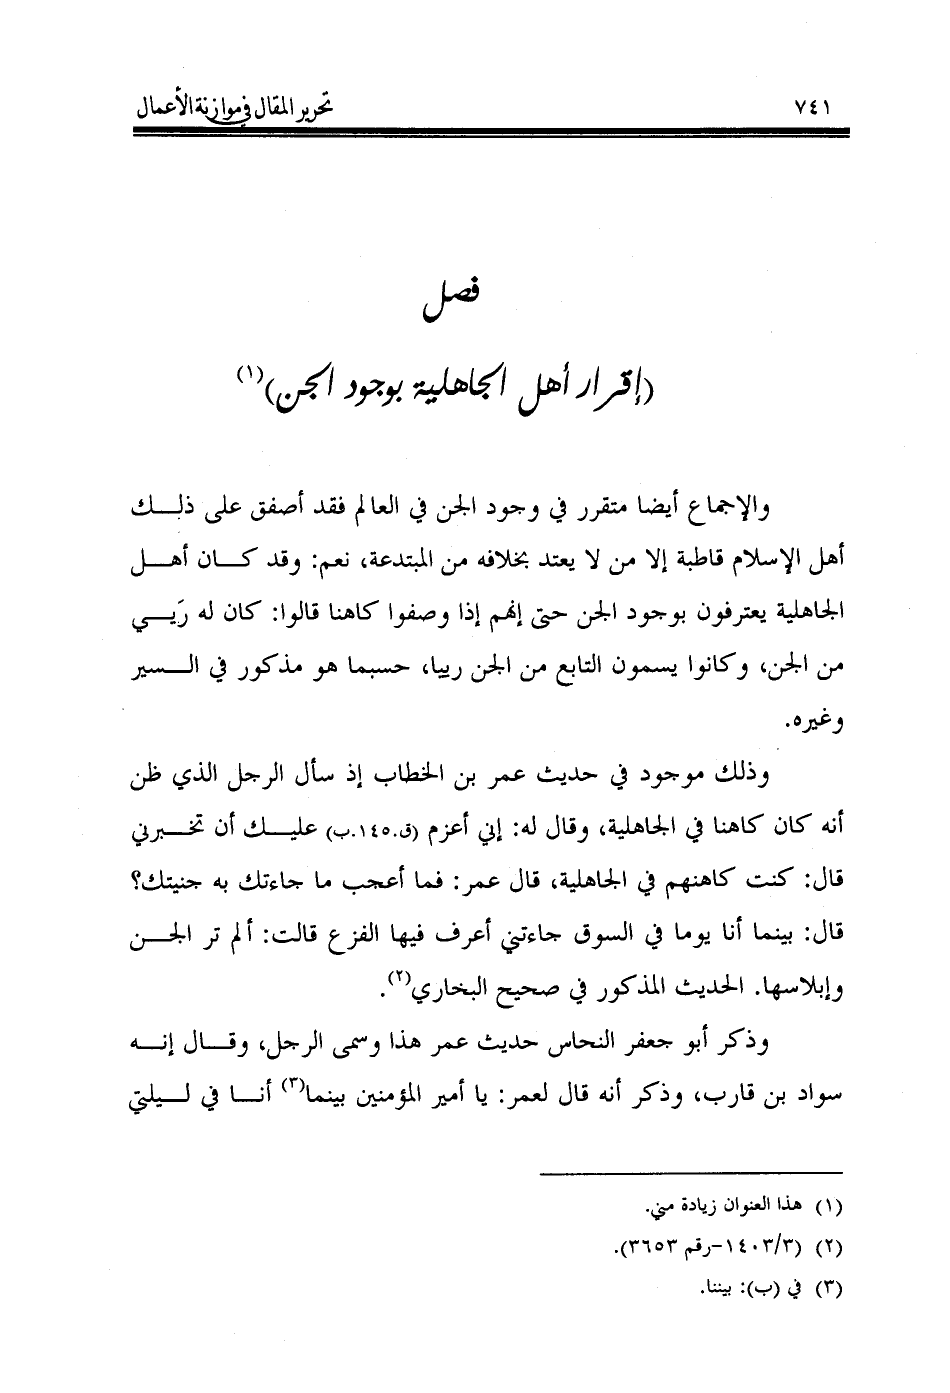 ٧٤١ تحرير المقال في موازنة الأعمال
فصل
(إقرار أهل الجاهلية بوجود الجن)(١)
والإجماع أيضا متقرر في وجود الجن في العالم فقد أصفق على ذلك
أهل الإسلام قاطبة إلا من لا يعتد بخلافه من المبتدعة، نعم: وقد كان أهل
الجاهلية يعترفون بوجود الجن حتى إنهم إذا وصفوا كاهنا قالوا: كان له رَيي
من الجن، وكانوا يسمون التابع من الجن رييا، حسبما هو مذكور في السير
وغيره.
وذلك موجود في حديث عمر بن الخطاب إذ سأل الرجل الذي ظن
أنه كان كاهنا في الجاهلية، وقال له: إني أعزم (ق.١٤٥.ب) عليك أن تخبرني
قال: كنت كاهنهم في الجاهلية، قال عمر: فما أعجب ما جاءتك به جنيتك؟
قال: بينما أنا يوما في السوق جاءتني أعرف فيها الفزع قالت: ألم تر الجن
وإبلاسها. الحديث المذكور في صحيح البخاري(٢).
وذكر أبو جعفر النحاس حديث عمر هذا وسمى الرجل، وقال إنه
سواد بن قارب، وذكر أنه قال لعمر: يا أمير المؤمنين بينما(٣) أنا في ليلتي
(١) هذا العنوان زيادة مني.
(٢) (١٤٠٣/٣-رقم ٣٦٥٣).
(٣) في (ب): بيننا.